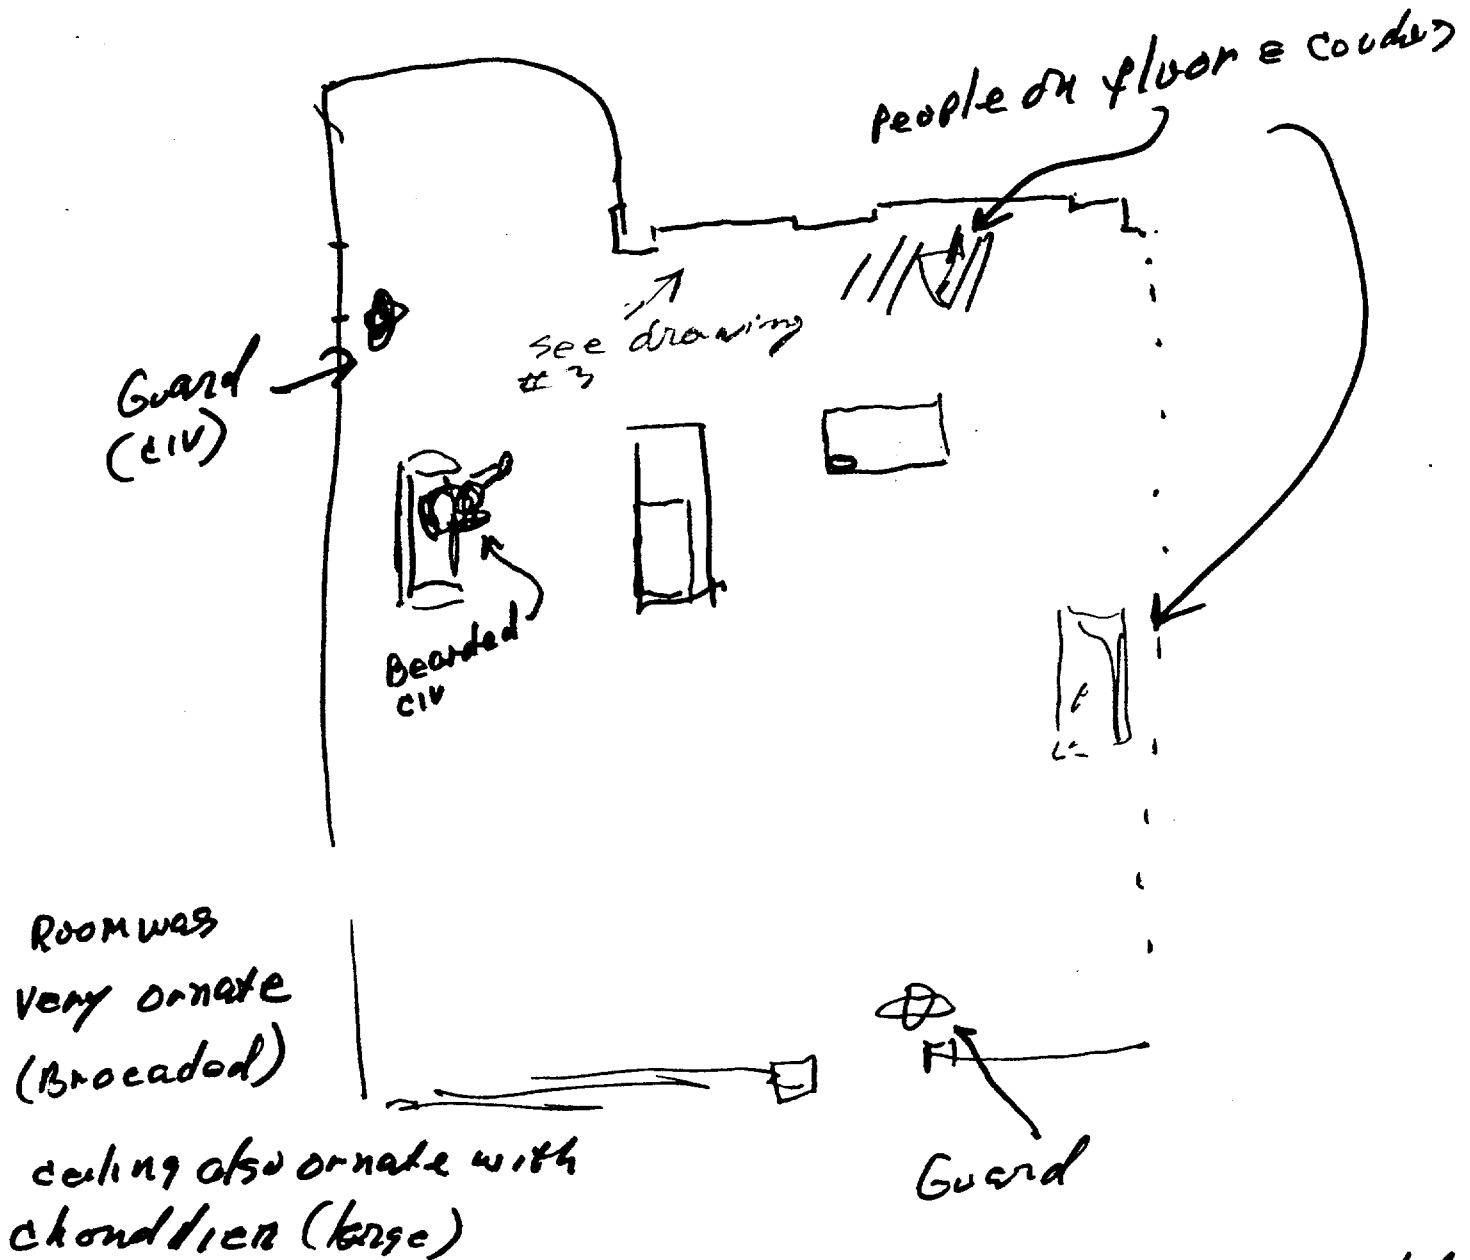 People on floor & couches
see drawing
#3
Guard
(CIV)
Bearded
CIV
Room was
very ornate
(Brocadod)
ceiling also ornate with
chonddier (large)
Guard